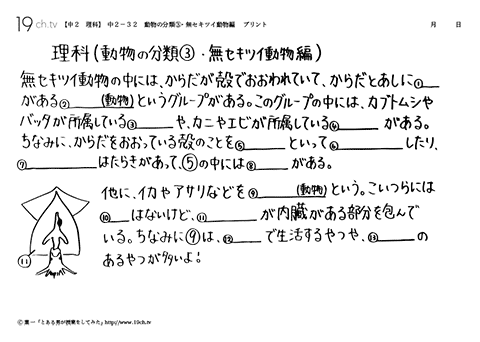 19ch.tv 【中2 理科】 中2-32 動物の分類③・無セキツイ動物編 プリント 月 日
理科(動物の分類③・無セキツイ動物編)
無セキツイ動物の中には、からだが殻でおおわれていて、からだとあしに①__
がある②____(動物)というグループがある。このグループの中には、カブトムシや
バッタが所属している③____や、カニやエビが所属している④____がある。
ちなみに、からだをおおっている殻のことを⑤____といって⑥____したり、
⑦____はたらきがあって、⑤の中には⑧____がある。
他に、イカやアサリなどを⑨____(動物)という。こいつらには
⑩__はないけど、⑪____が内臓がある部分を包んで
いる。ちなみに⑨は、⑫____で生活するやつや、⑬____の
あるやつが多いよ!
⑪
Ⓒ葉一「とある男が授業をしてみた」http://www.19ch.tv